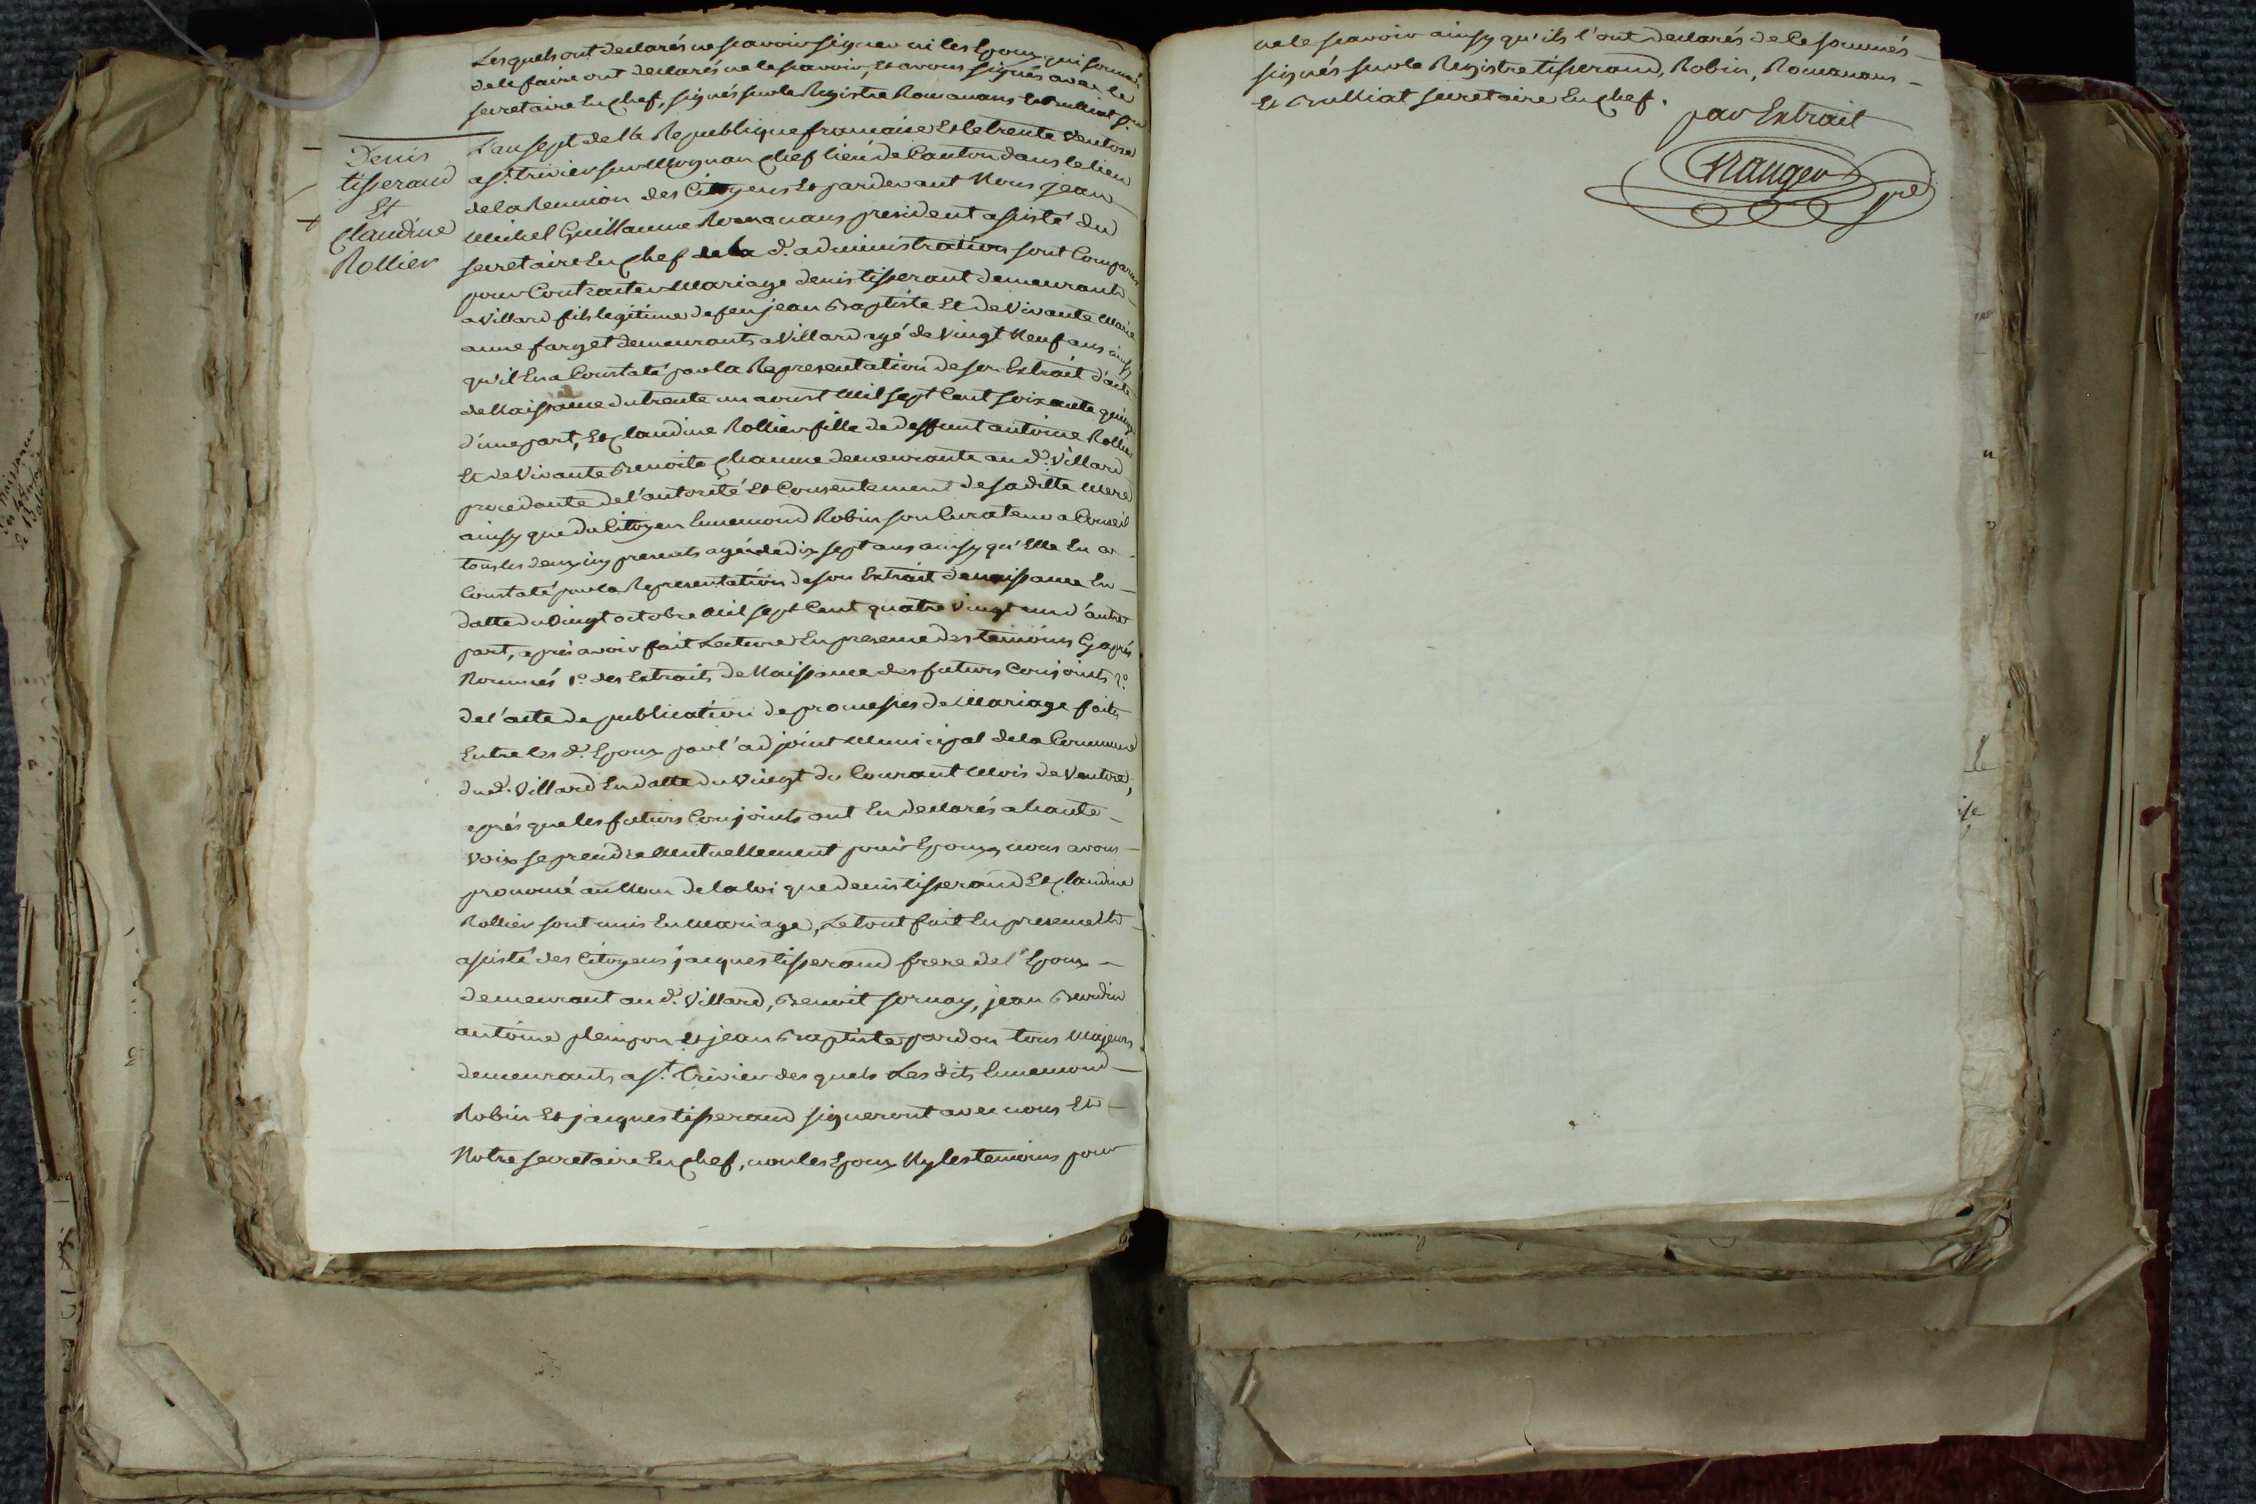 Lesquels ont declarés ne scavoir signer ni les Epoux qui sommés
de le faire ont declarés ne le scavoir, et avons signés avec le
secretaire En chef, signés sur le Registre Romanans Et Brulliat s.re
Denis
tisserand
Et
Claudine
Rollier
L'an sept de la Republique francaise Et le trente Ventose
a st. trivier sur Moignan chef lieu de Canton dans le lieu
de la Reunion des Citoyens Et pardevant Nous jean
Michel Guillaume Romanans president assisté du
secretaire En chef de la d. administration sont Comparus
pour Contracter Mariage denis tisserant demeurant
a Villard fils legitime de feu jean Baptiste Et de Vivante Marie
anne farget demeurants a Villard agé de Vingt Neuf ans ainsy
qu'il En a Constaté par la Representation de son Extrait d'acte
de Naissance du trente un aoust Mil sept Cent soixante
d'une part, Et Claudine Rollier fille de deffunt antoine Rollier
Et de Vivante Benoite Channe demeurante au d. Villard
procedante de l'autorité Et Consentement de sa ditte Mere
ainsy que du Citoyen Ennemond Robin son Curateur a Conseil
tous les deux icy presents agée de dix sept ans ainsy qu'Elle En a
Constaté par la Representation de son Extrait de naissance En
datte du Vingt octobre Mil sept Cent quatre Vingt un d'autre
part, après avoir fait Lecture En presence des temoins Cy après
Nommés 1o. des Extraits de Naissance des futurs Conjoints 2o.
de l'acte de publication de promesses de Mariage faite
Entre les d. Epoux par l'adjoint Municipal de la Commune
du d. Villard En datte du Vingt du Courant Mois de Ventose,
après que les futurs Conjoints ont Eu declarés a haute
Voix se prendre Mutuellement pour Epoux, nous avons
prononcé au Nom de la loi que denis tisserand Et Claudine
Rollier sont unis En Mariage, Le tout fait En presence Et
assisté des Citoyens jacques tisserand frere de l'Epoux
demeurant au d. Villard, Benoit sornay, jean Burdin
antoine pleinpon Et jean Baptiste pardon tous Majeurs
demeurants a st. Trivier des quels Les dits Ennemond
Robin Et jacques tisserand signeront avec nous Et
Notre secretaire En chef, non les Epoux Ny les temoins pour
ne le scavoir ainsy qu'ils l'ont declarés de ce sommés
signés sur le Registre tisserand, Robin, Romanans
Et Brulliat secretaire En chef.
par Extrait